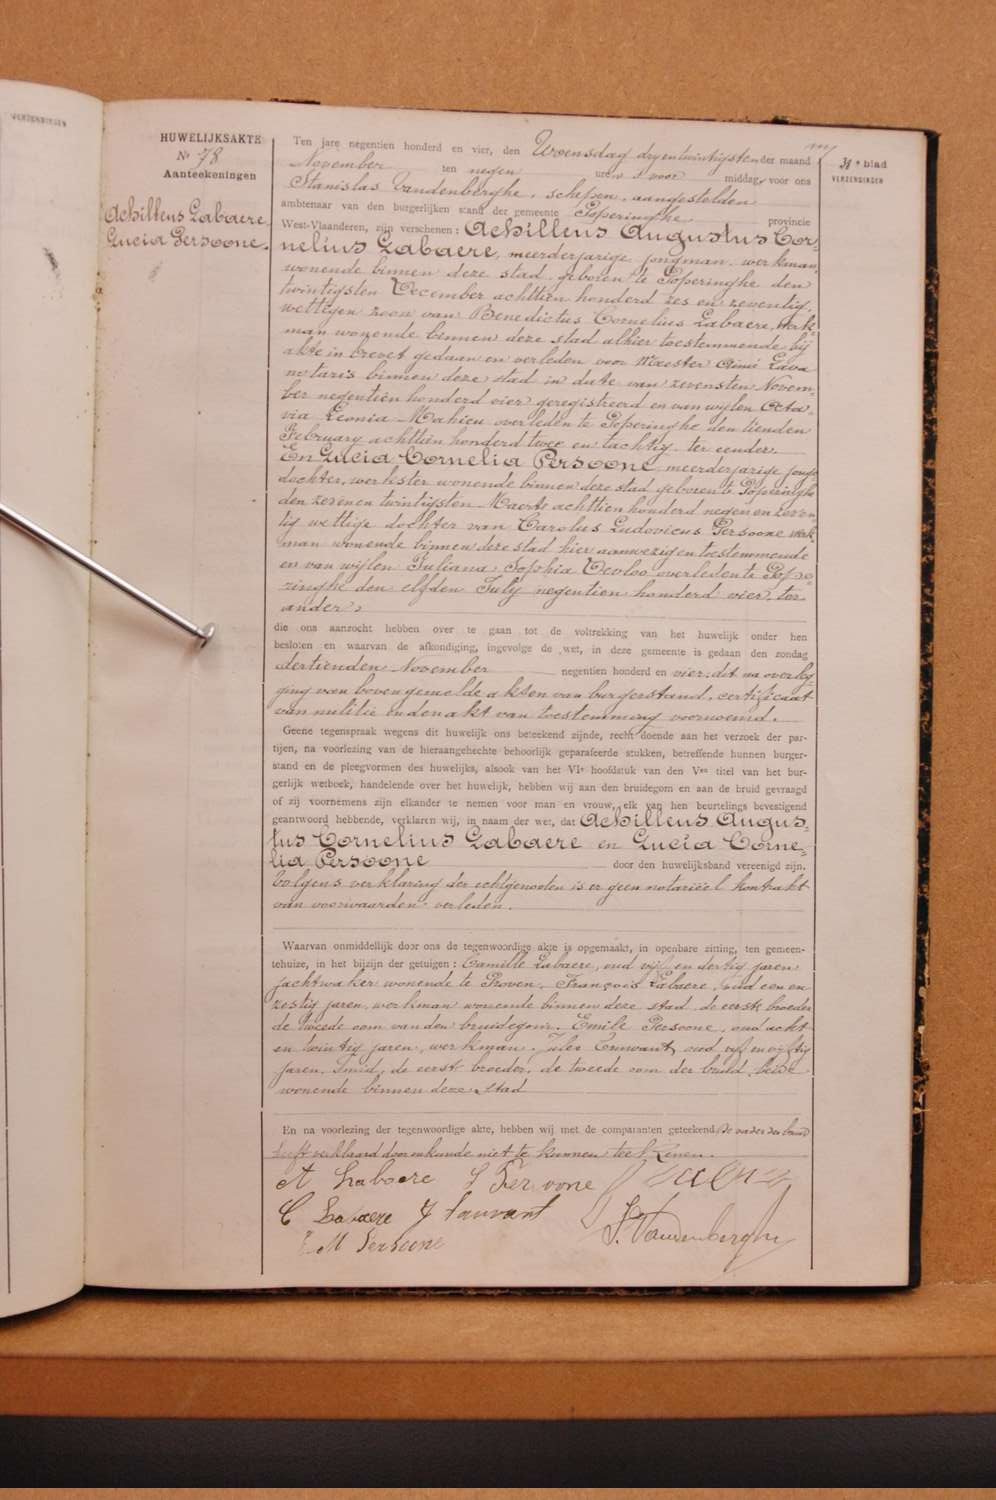 VERZENDINGEN
HUWELIJKSAKTE
Nr 78
Aanteekeningen
Achilleus Labaere
Lucia Persoone.
39e blad
VERZENDINGEN
Ten jare negentien honderd en vier, den Woensdag dryentwintigsten der maand
November ten negen uren voor middag, voor ons
Stanislas Vandenberghe, schepen, aangestelden
ambtenaar van den burgerlijken stand der gemeente Poperinghe provincie
West-Vlaanderen, zijn verschenen : Achilleus Augustus Cor-
nelius Labaere, meerderjarige jongman, werkman,
wonende binnen deze stad, geboren te Poperinghe den
twintigsten December achttien honderd zes en zeventig,
wettigen zoon van Benedictus Cornelius Labaere, werk-
man wonende binnen deze stad alhier toestemmende bij
akte in brevet gedaan en verleden voor Meester Aimé Lava
notaris binnen deze stad in date van zevensten Novem-
ber negentien honderd vier geregistreerd en van wijlen Octa-
via Leonia Mahieu overleden te Poperinghe den tienden
February achttien honderd twee en tachtig, ter eender.
En Lucia Cornelia Persoone, meerderjarige jonge
dochter, werkster wonende binnen deze stad geboren te Poperinghe
den zeven en twintigsten Maarte achttien honderd negen en zeven-
tig wettige dochter van Carolus Ludovicus Persoone werk-
man wonende binnen deze stad hier aanwezig en toestemmende
en van wijlen Juliana Sophia Devloo overleden te Pope-
ringhe den elfden July negentien honderd vier, ter
ander,
die ons aanzocht hebben over te gaan tot de voltrekking van het huwelijk onder hen
besloten en waarvan de afkondiging, ingevolge de wet, in deze gemeente is gedaan den zondag
dertienden November negentien honderd en vier; dit na overleg-
ging van bovengemelde akten van burgerstand, certificaat
van militie en den akt van toestemming voornoemd.
Geene tegenspraak wegens dit huwelijk ons beteekend zijnde, recht doende aan het verzoek der par-
tijen, na voorlezing van de hieraangehechte behoorlijk geparafeerde stukken, betreffende hunnen burger-
stand en de pleegvormen des huwelijks, alsook van het VIe hoofdstuk van den Ven titel van het bur-
gerlijk wetboek, handelende over het huwelijk, hebben wij aan den bruidegom en aan de bruid gevraagd
of zij voornemens zijn elkander te nemen voor man en vrouw, elk van hen beurtelings bevestigend
geantwoord hebbende, verklaren wij, in naam der wet, dat Achilleus Augus-
tus Cornelius Labaere en Lucia Corne-
lia Persoone door den huwelijksband vereenigd zijn.
Volgens verklaring der echtgenooten is er geen notariëel kontrakt
van voorwaarden verleden.
Waarvan onmiddellijk door ons de tegenwoordige akte is opgemaakt, in openbare zitting, ten gemeen-
tehuize, in het bijzijn der getuigen : Camille Labaere, oud vijf en dertig jaren
jachtwaker wonende te Proven, François Labaere, oud een en
zestig jaren, werkman wonende binnen deze stad, de eerste broeder
de tweede oom van den bruidegom. Emile Persoone, oud acht
en twintig jaren, werkman. Jules oud vijf en vijftig
jaren, smid, de eerste broeder, de tweede oom der bruid, beide
wonende binnen deze stad
En na voorlezing der tegenwoordige akte, hebben wij met de comparanten geteekend, de vader der bruid
heeft verklaard door onkunde niet te kunnen teekenen.
A Labaere L Persoone
C Labaere J
E M Persoone S. Vandenberghe